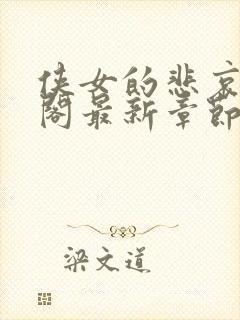 侠女的悲哀
阁最新章节
梁文道